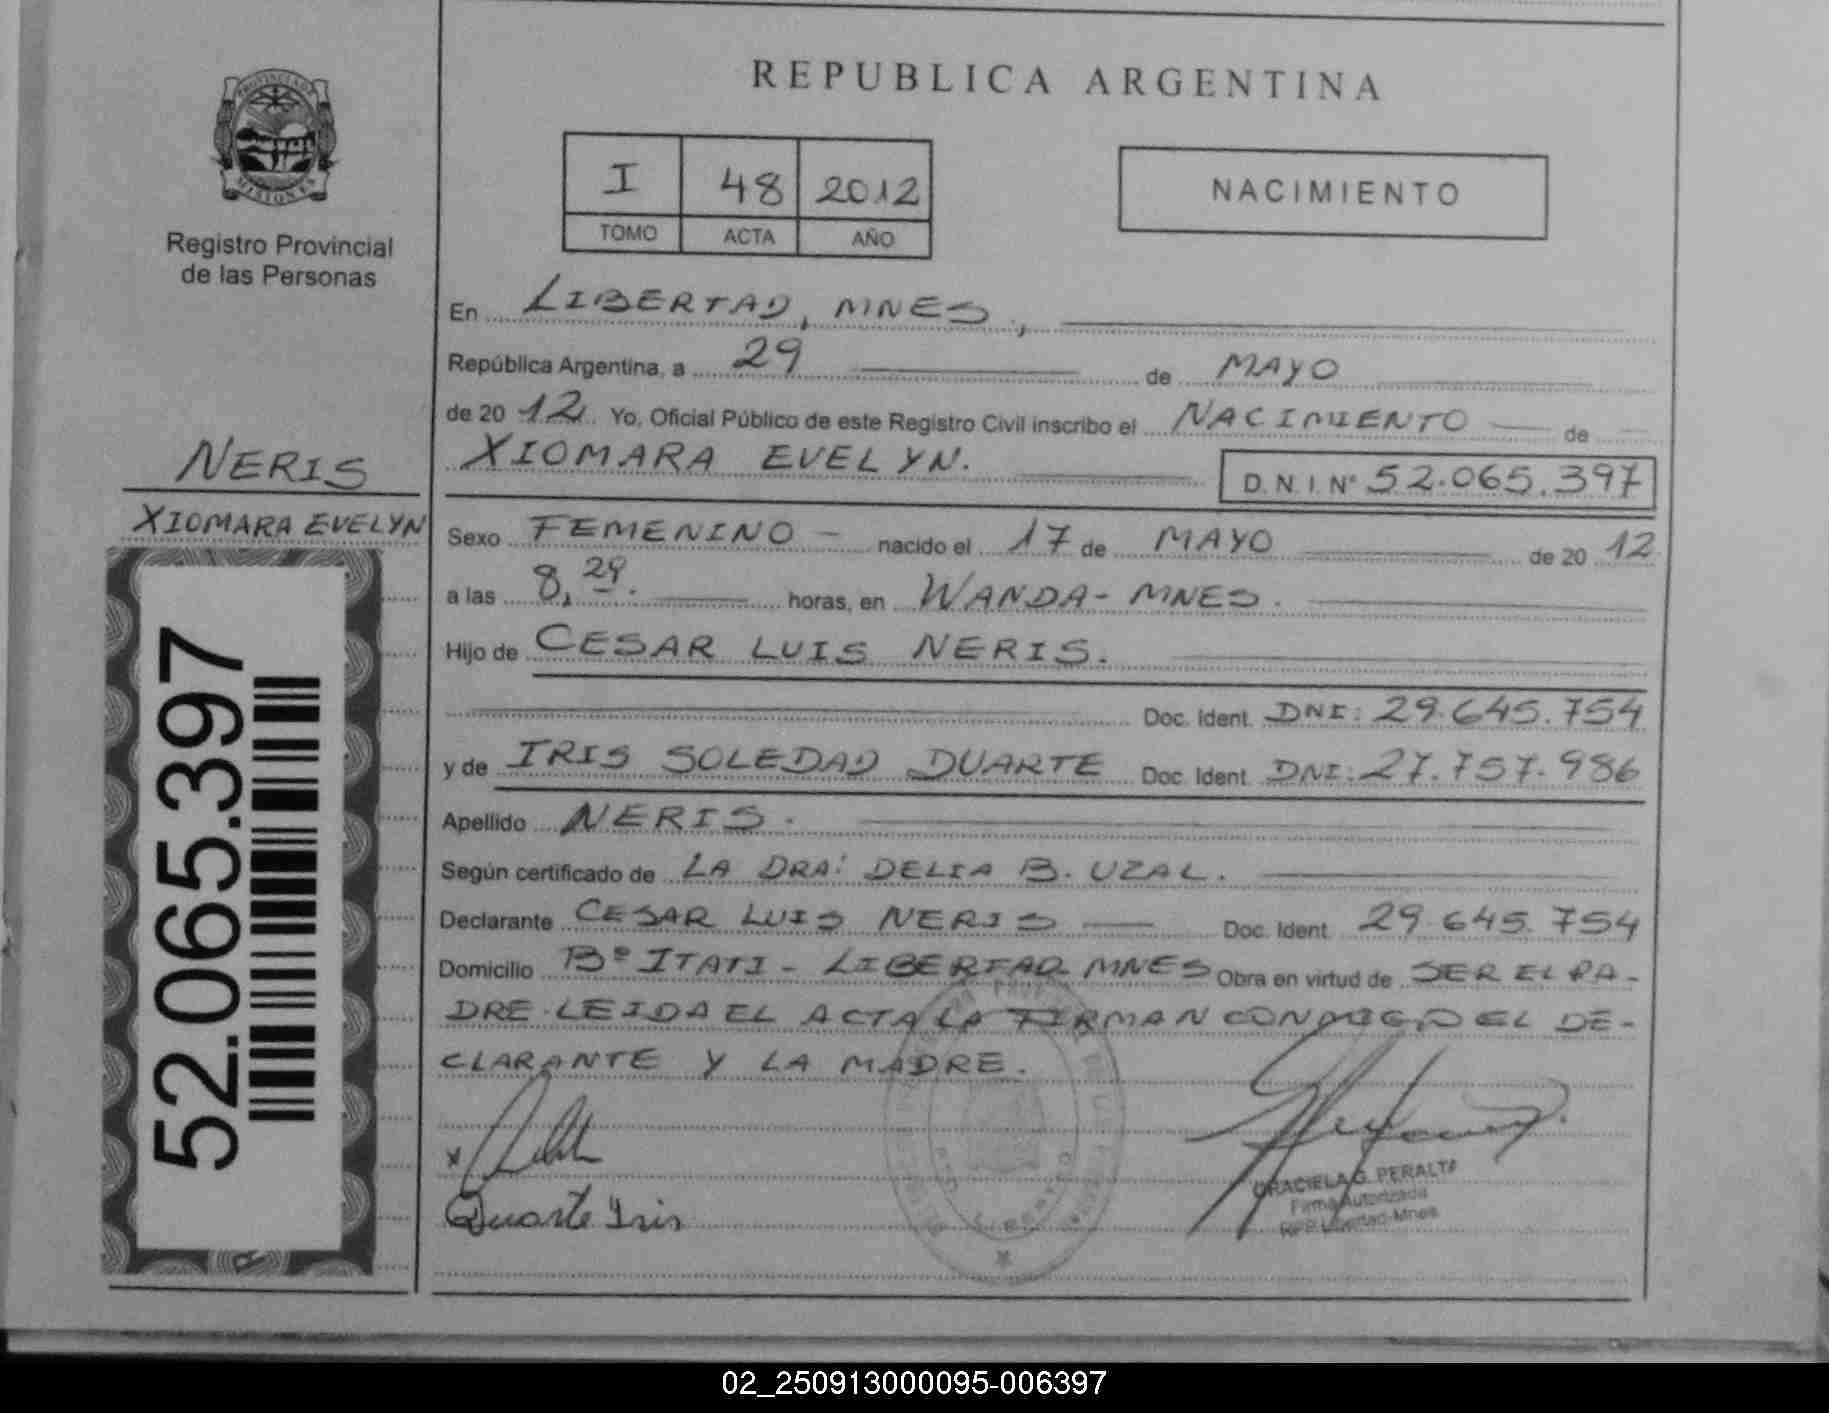 REPUBLICA ARGENTINA
PROVINCIA DE
MISIONES
Registro Provincial
de las Personas
I 48 2012
TOMO ACTA AÑO
NACIMIENTO
En LIBERTAD, MNES.,
República Argentina, a 29 de MAYO
de 20 12 Yo, Oficial Público de este Registro Civil inscribo el NACIMIENTO de
XIOMARA EVELYN. D.N.I. N° 52.065.397
NERIS
XIOMARA EVELYN
52.065.397
Sexo FEMENINO - nacido el 17 de MAYO de 20 12
a las 8,29. horas, en WANDA - MNES.
Hijo de CESAR LUIS NERIS.
Doc. Ident. DNI: 29.645.754
y de IRIS SOLEDAD DUARTE Doc. Ident. DNI: 27.757.986
Apellido NERIS.
Según certificado de LA DRA: DELIA B. UZAL.
Declarante CESAR LUIS NERIS Doc. Ident. 29.645.754
Domicilio B° ITATI - LIBERTAD MNES Obra en virtud de SER EL PA-
DRE. LEIDA EL ACTA LA FIRMAN CONMIGO EL DE-
CLARANTE Y LA MADRE.
Duarte Iris
GRACIELA G. PERALTA
Firma Autorizada
RPP Libertad-Mnes
02_250913000095-006397